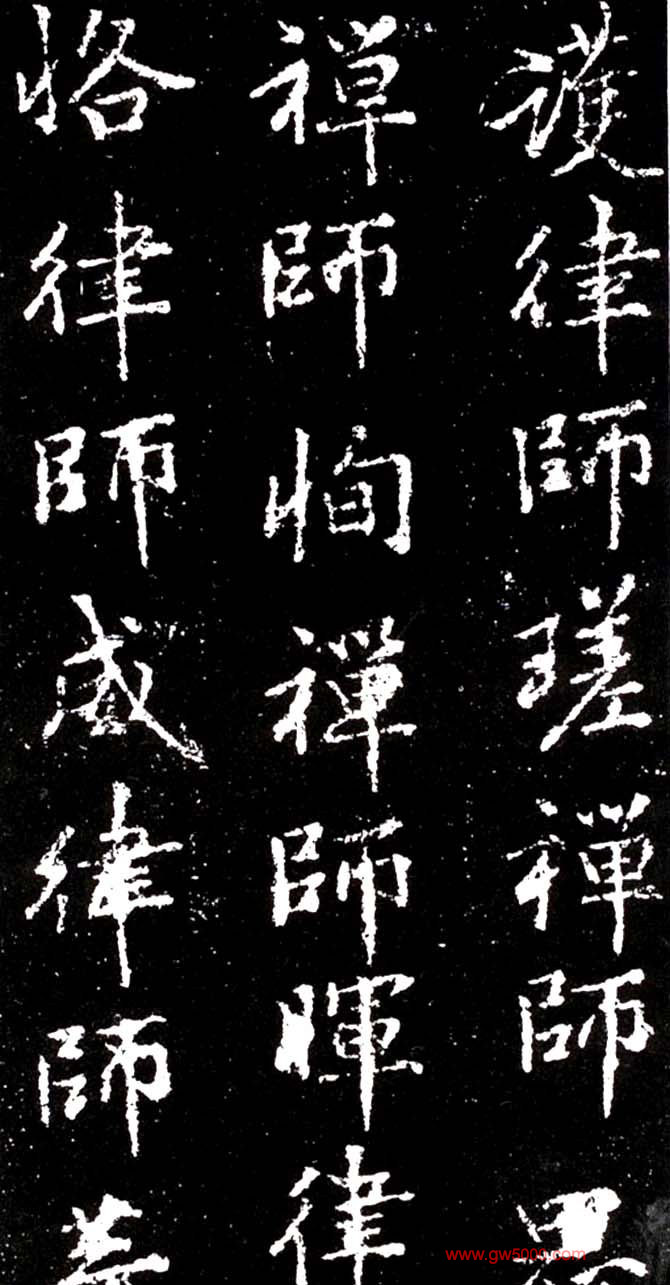 護律師瑳禪師
禪師恂禪師暉律
恪律師威律師
www.gw5000.com